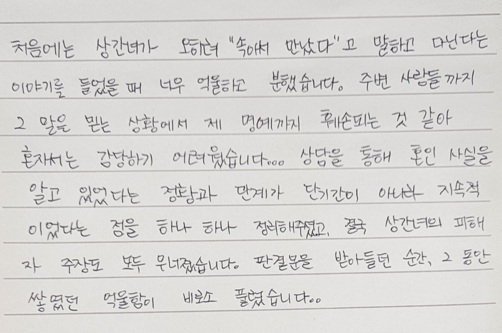 처음에는 상간녀가 오히려 "속아서 만났다"고 말하고 다닌다는
이야기를 들었을 때 너무 억울하고 분했습니다. 주변 사람들까지
그 말을 믿는 상황에서 제 명예까지 훼손되는 것 같아
혼자서는 감당하기 어려웠습니다... 상담을 통해 혼인 사실을
알고 있었다는 정황과 관계가 단기간이 아니라 지속적
이었다는 점을 하나 하나 정리해주셨고, 결국 상간녀의 피해
자 주장도 모두 무너졌습니다. 판결문을 받아들던 순간, 그 동안
쌓였던 억울함이 비로소 풀렸습니다..